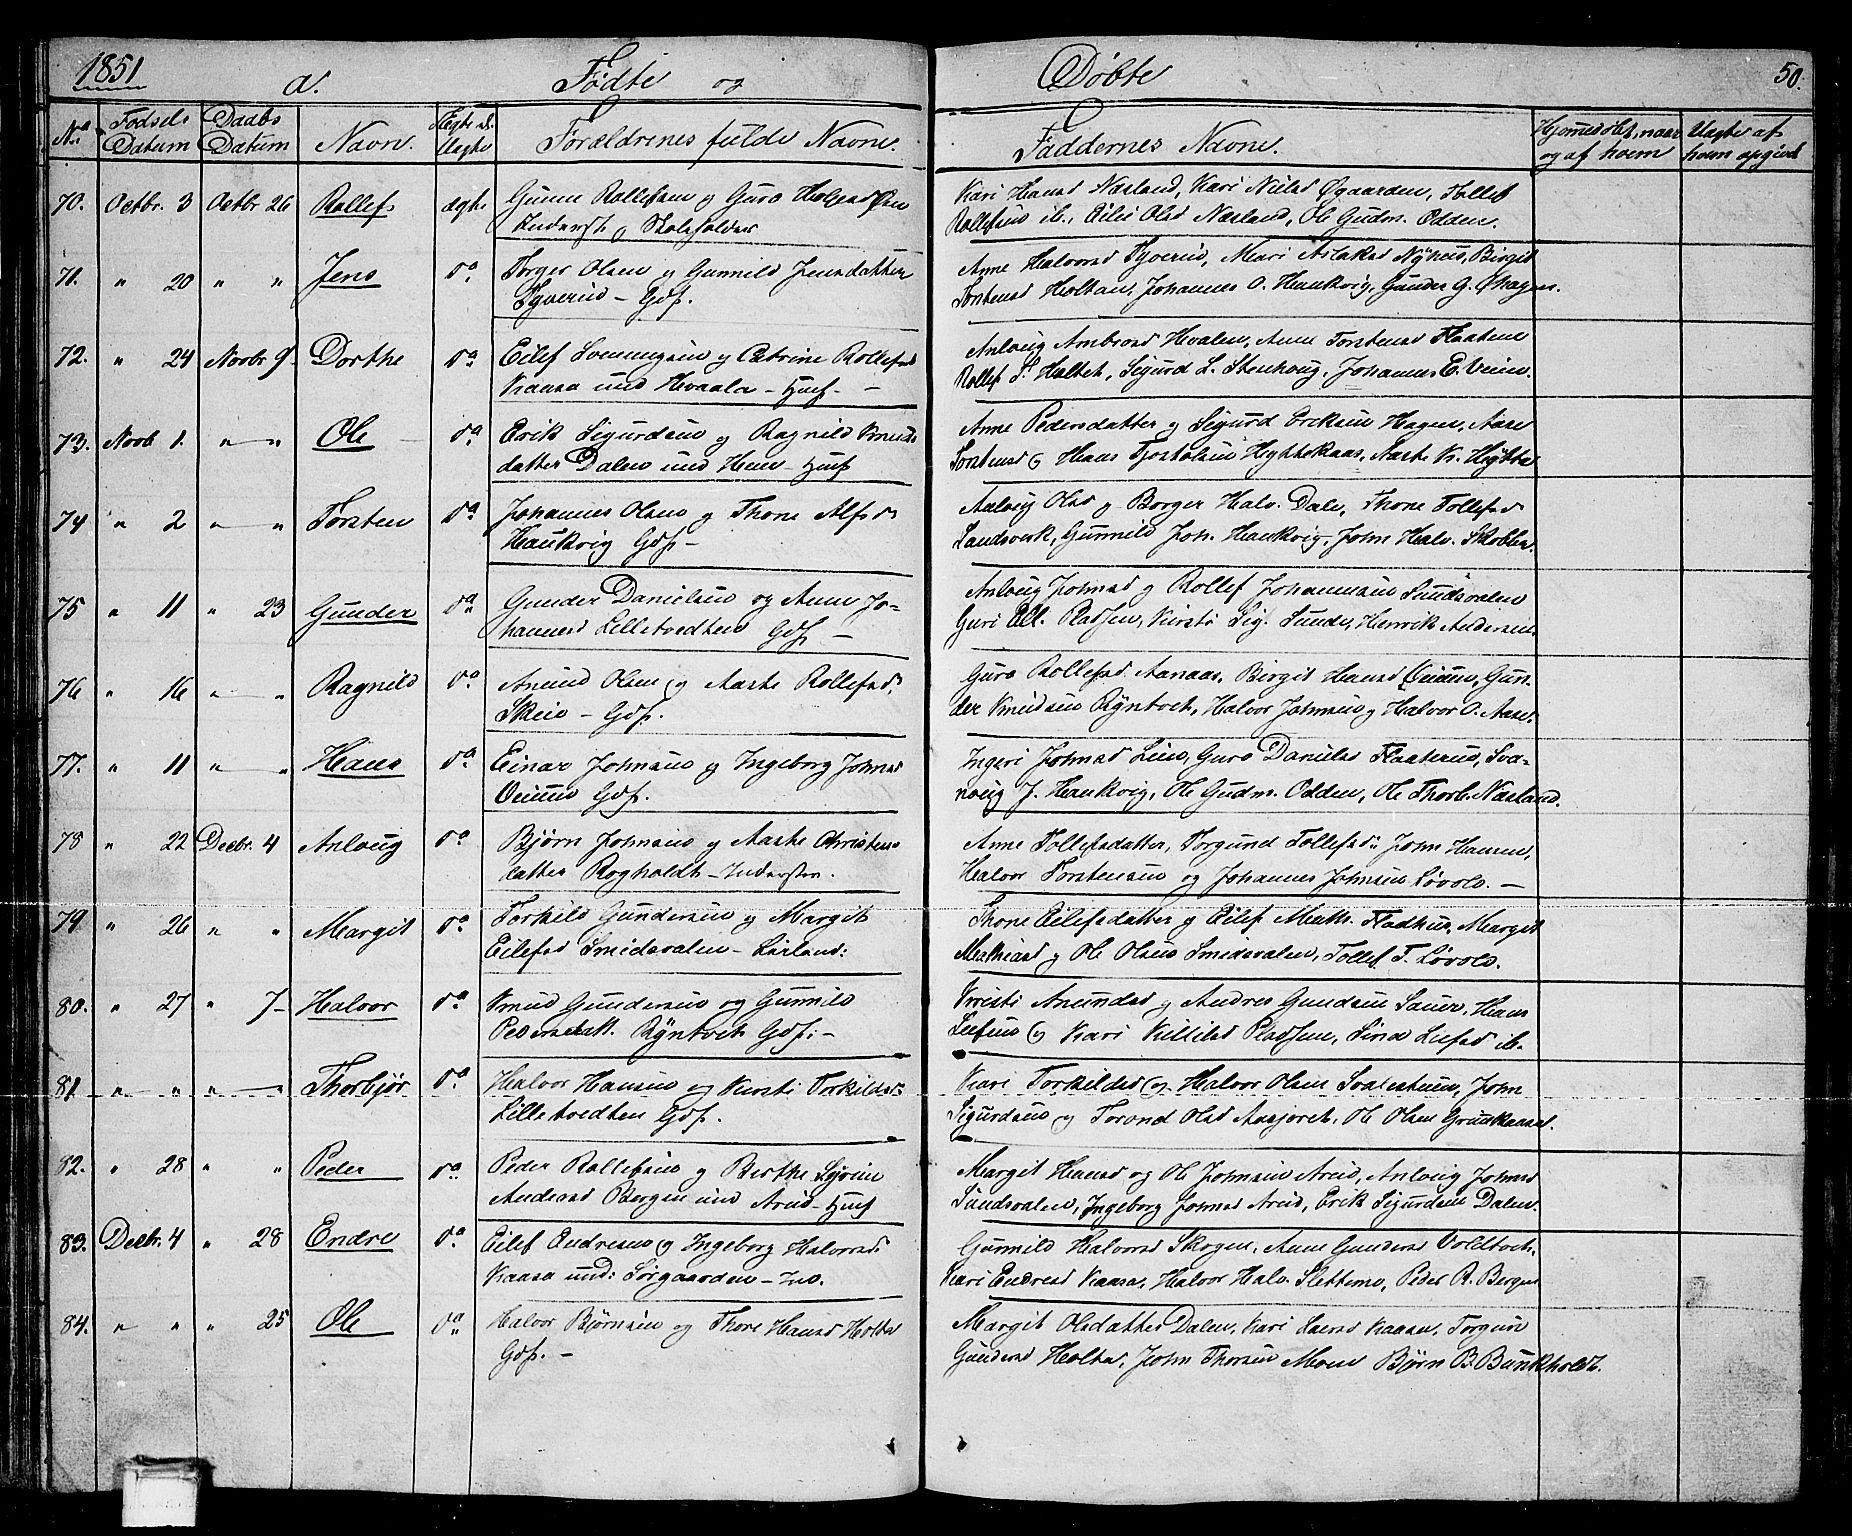 1851 a. Fødte og Døbte 50.
No. Fødsels Datum Daabs Datum Navn. Ægte el. Uægte Forældrenes fulde Navne. Faddernes Navne. Hjemmedøbt, naar og af hvem Uægte af hvem opgivet
70. Octbr. 3 Octbr 26 Rollef ægte Gunne Rollefsen og Guro Helges
Inderst og Skoleholder
Kari Hansd Næsland, Kari Nielsd Øgaarden, Tollef
Rollefsen ib., Eilev Olsd Næsland, Ole Gudm. Odden.
71. " 20 " " Jens do Torger Olsen og Gunnild Jensdatter
Tyverud – Gdf.
Anne Halvorsd Tyverud, Mari Aslaksd Nyhuus, Birgit
Torstensd Holtan, Johannes O. Haukvig, Gunder G. Hagen.
72. " 24 Novbr 9 Dorthe do Eilef Sveinungsen og Catrine Rollefsd
Kaasa und Hvaala – Huusf. –
Anlaug Ambrosd Hvalen, Anne Torstensd Flaaten
Rollef S. Holtet, Sigurd L. Stenhoug, Johannes E. Veien.
73. Novb 1. " " Ole do Erik Sigurdsen og Ragnild Knuds
datter Dalen und Hem – Huusf
Anne Pedersdatter og Sigurd Eriksen Hagen, Aase
Torstensd og Hans Tjostolsen Hyttekaas, Aaste K. Hytta
74 " 2 " " Torsten do Johannes Olsen og Thone Alfsd
Haukvig Gdf –
Anlaug Olsd og Borger Halv. Dale, Thone Tollefsd
Landsverk, Gunnild Joh. Haukvig, John Halv. Skobba.
75 " 11 " 23 Gunder do Gunder Danielsen og Anne Jo-
hannesd Lilletvedten Gdf –
Anlaug Johnsd og Rollef Johannesen Sundsvalen
Guri Ell. Pladsen, Kirsti Sig. Sunde, Henrik Andersen.
76 " 16 " " Ragnild do Anund Olsen og Aaste Rollefsd.
Skeie – Gdf.
Guro Rollefsd Aanaas, Birgit Hansd Veien, Gun-
der Knudsen Ryntveit, Halvor Johnsen og Halvor O. Aase.
77. " 11 " " Hans do Einar Johnsen og Ingeborg Johnsd
Veien Gdf.
Ingeri Johnsd Lien, Guro Danielsd Flaaterud, Sva-
noug J. Haukvig, Ole Gudm. Odden, Ole Thorb. Næsland.
78 " 22 Decbr. 4 Anloug do Bjørn Johnsen og Aaste Christens
datter Rogholdt – Indersten.
Anne Tollefsdatter, Torgund Tollefsd: John Hansen,
Halvor Torstensen og Johannes Johnsen Løvold. –
79. " 26 " " Margit do Torkild Gundersen og Margit
Eilefsd Smidsvalen – Lørland:
Thone Eilefsdatter og Eilef Math. Fladhus, Margit
Mathiasd og Ole Olsen Smidsvalen, Tollef T. Løvold.
80. " 27 " 7 – Halvor do Knud Gundersen og Gunnild
Pedersdatt. Ryntveit Gdf: –
Kirsti Anundsd og Andres Gundsen Sauer, Hans
Leefsen og Kari Killilsd Pladsen, Sina Liefsd ib.
81 " " " " Thorbjør do Halvor Hansen og Kirsti Torkilds:
Lilletvedten Gdf.
Kari Torkildsd og Halvor Olsen Svalestuen, John
Sigurdsen og Torond Olsd Aasjoret, Ole Olsen Grinikaasa.
82. " 28 " " Peder do Peder Rollefsen og Berthe Syvine
Andersd Bergen und Arud – Huusf
Margit Hansd og Ole Johnsen Arud, Anloug Johnsd
Sundsvalen, Ingeborg Johnsd Arud, Erik Sigurdsen Dalen.
83. Decbr. 4 " 28 Endre do Eilef Andresen og Ingeborg Halvorsd:
Kaasa und: Sørgaarden – Ind.
Gunnild Halvorsd Skogen, Anne Gundersd Voldtveit,
Kari Endresd Kaasa, Halvor Halv. Slettemo, Peder R. Bergen
84. " " " 25 Ole do Halvor Bjørnsen og Thone Hansd Holta
Gdf. –
Margit Olsdatter Dalen, Kari Hansd Kaasa, Torgun
Gundersd Holta, John Thorsen Moen Bjørn B. Bunkholdt.